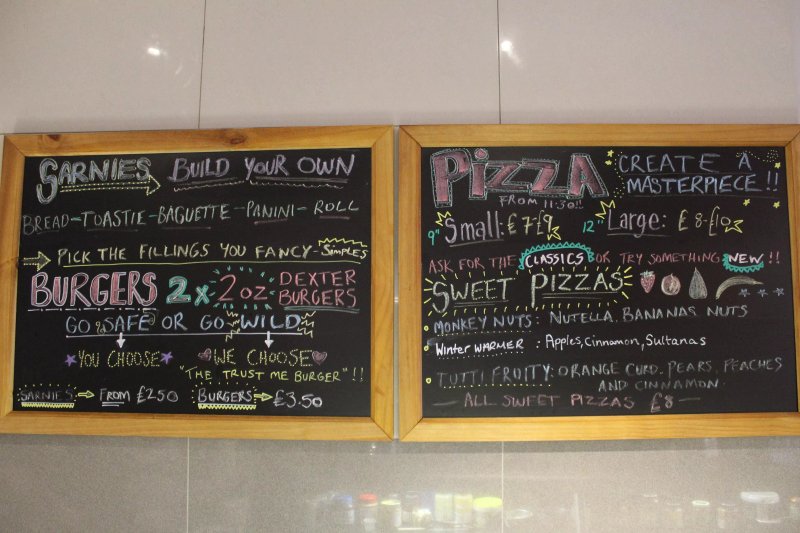 SARNIES BUILD YOUR OWN
BREAD-TOASTIE-BAGUETTE-PANINI-ROLL
PICK THE FILLINGS YOU FANCY-SIMPLES
BURGERS 2x2oz DEXTER BURGERS
GO SAFE OR GO WILD
YOU CHOOSE WE CHOOSE
"THE TRUST ME BURGER"!!
SARNIES FROM £250 BURGERS £3.50
PIZZA CREATE A MASTERPIECE!!
FROM 11:30!!
9" Small: £7-£9 12" Large: £8-£10
ASK FOR THE CLASSICS OR TRY SOMETHING NEW!!
SWEET PIZZAS
MONKEY NUTS: NUTELLA, BANANAS NUTS
Winter WARMER : Apples, Cinnamon, Sultanas
TUTTI FRUITY: ORANGE CURD, PEARS, PEACHES
AND CINNAMON.
ALL SWEET PIZZAS £8